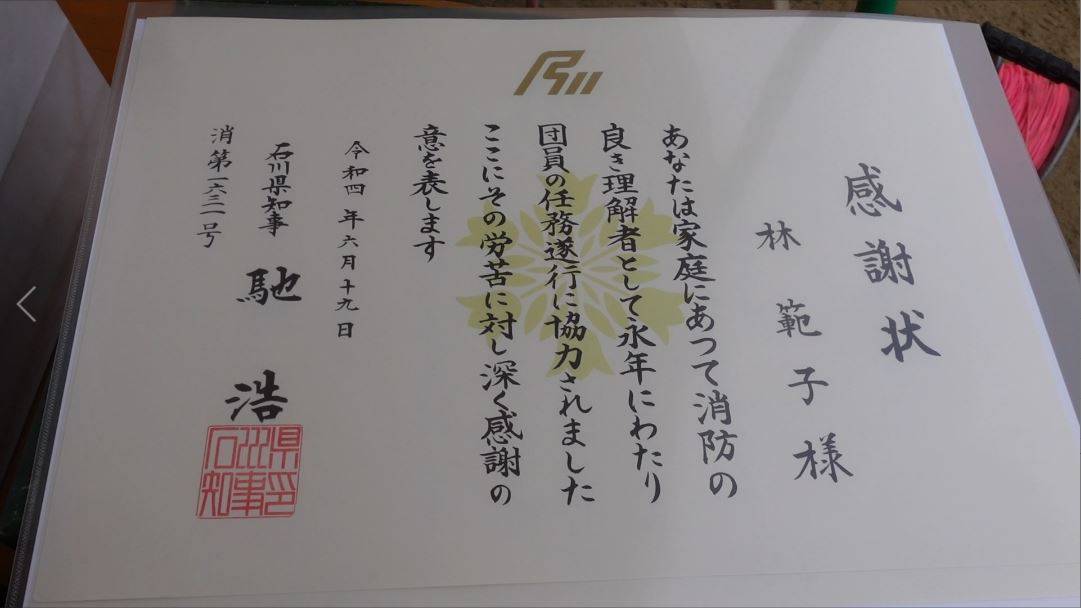 感謝状
林 範子様
あなたは家庭にあつて消防の
良き理解者として永年にわたり
団員の任務遂行に協力されました
ここにその労苦に対し深く感謝の
意を表します
令和四年六月十九日
石川県知事 馳 浩
石川県知事印
消第一六三一号